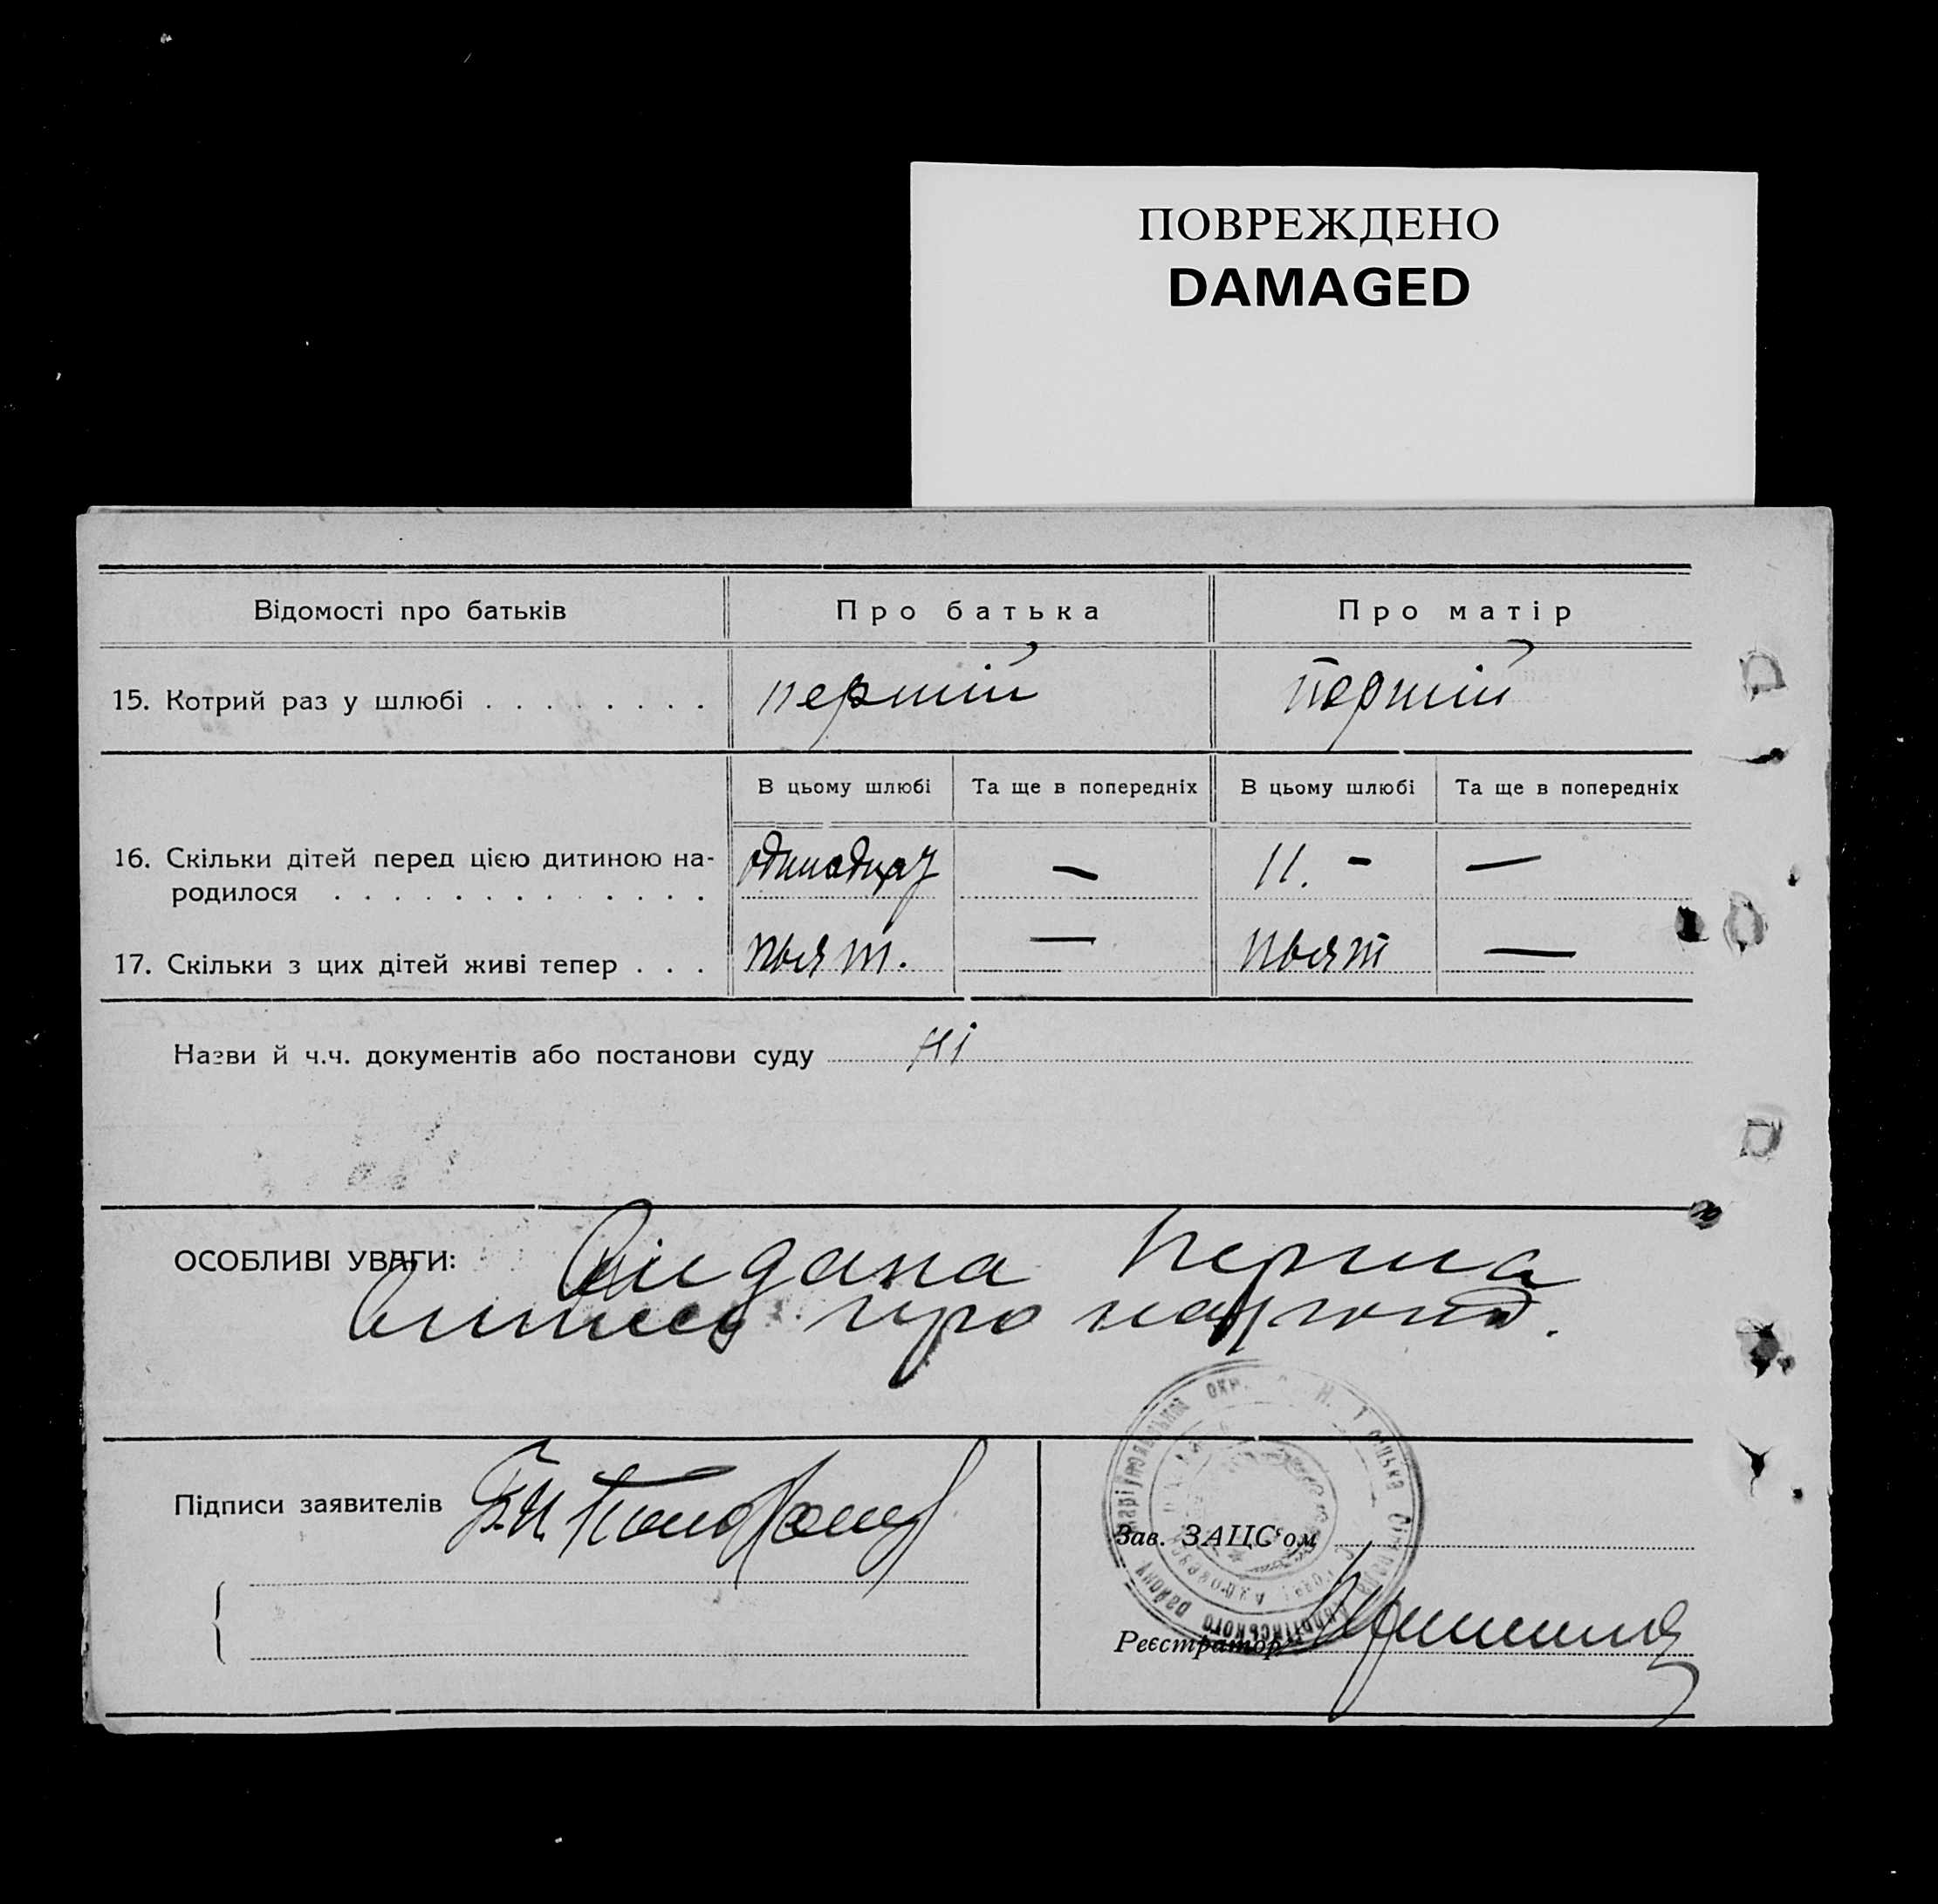 ПОВРЕЖДЕНО
DAMAGED
Відомості про батьків
Про батька
Про матір
15. Котрий раз у шлюбі . . . . . . . .
першій
першій
В цьому шлюбі
Та ще в попередніх
В цьому шлюбі
Та ще в попередніх
16. Скільки дітей перед цією дитиною на-
родилося . . . . . . . . . . . . .
—
11. -
—
17. Скільки з цих дітей живі тепер . . .
пьят.
—
пьят
—
Назви й ч.ч. документів або постанови суду
ні
ОСОБЛИВІ УВАГИ: Видана перша
випись про народ.
Підписи заявителів
Зав. ЗАЦС'ом
Реєстратор
району